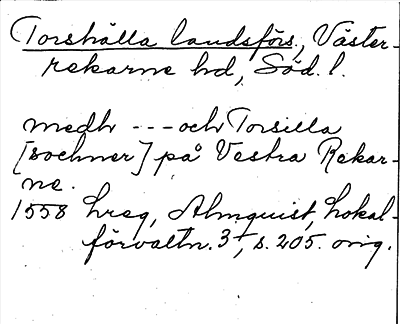 Torshälla landsförs., Väster-
rekarne hd, Söd. l.
medh --- och Torsilla
[sochner] på Vestra Rekar-
ne.
1558 hreg, Almquist, Lokal-
förvaltn. 3, s. 205. orig.